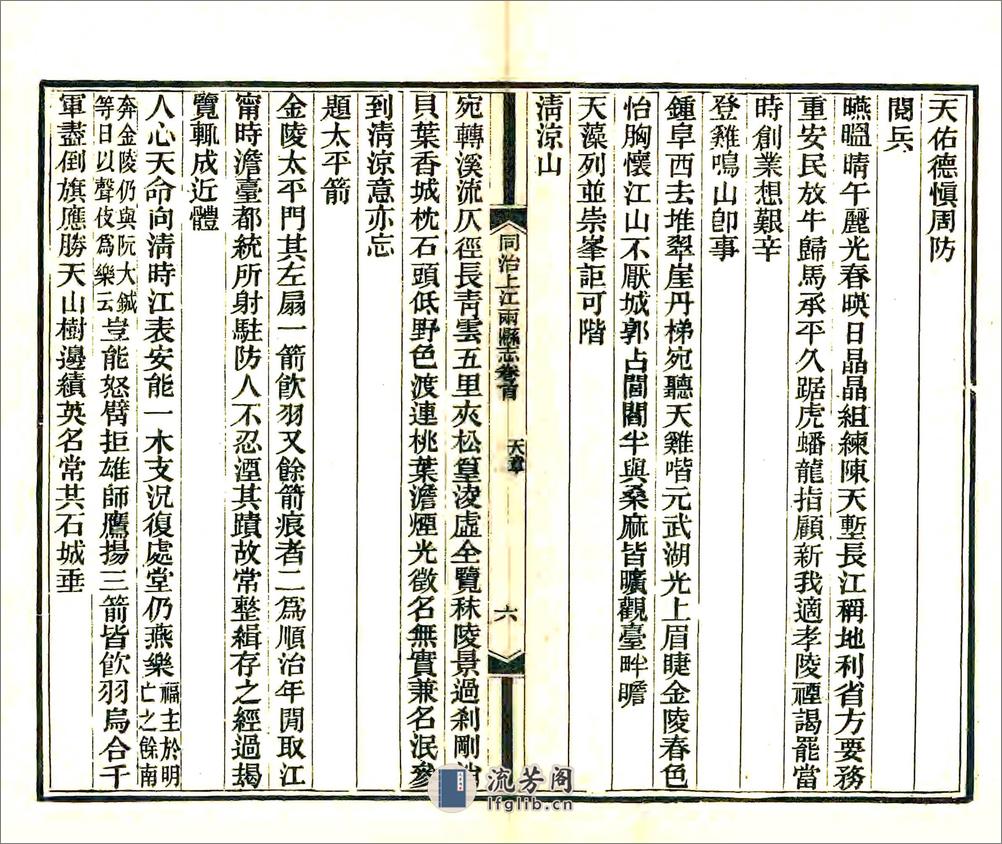 天佑德愼周防
閱兵
曣㬈晴午麗光春映日晶晶組練陳天塹長江稱地利省方要務
重安民放牛歸馬承平久踞虎蟠龍指顧新我適孝陵禋謁罷當
時創業想艱辛
登雞鳴山卽事
鍾阜西去堆翠崖丹梯宛聽天雞喈元武湖光上眉睫金陵春色
怡胸懷江山不厭城郭占閭閻半與桑麻皆曠觀臺畔瞻
天藻列並崇峯詎可階
淸涼山
宛轉溪流仄徑長靑雲五里夾松篁淩虛全覽秣陵景過刹剛
貝葉香城枕石頭低野色渡連桃葉澹煙光徵名無實兼名泯參
到淸涼意亦忘
題太平箭
金陵太平門其左扇一箭飮羽又餘箭痕者二爲順治年閒取江
甯時澹臺都統所射駐防人不忍湮其蹟故常整緝存之經過揭
覽輒成近體
人心天命向淸時江表安能一木支況復處堂仍燕樂福主於明亡之餘南
奔金陵仍與阮大鋮等日以聲伎爲樂云豈能怒臂拒雄師鷹揚三箭皆飮羽烏合千
軍盡倒旗應勝天山樹邊績英名常共石城垂
同治上江兩縣志卷首 天章 六
流芳阁
lfglib.cn